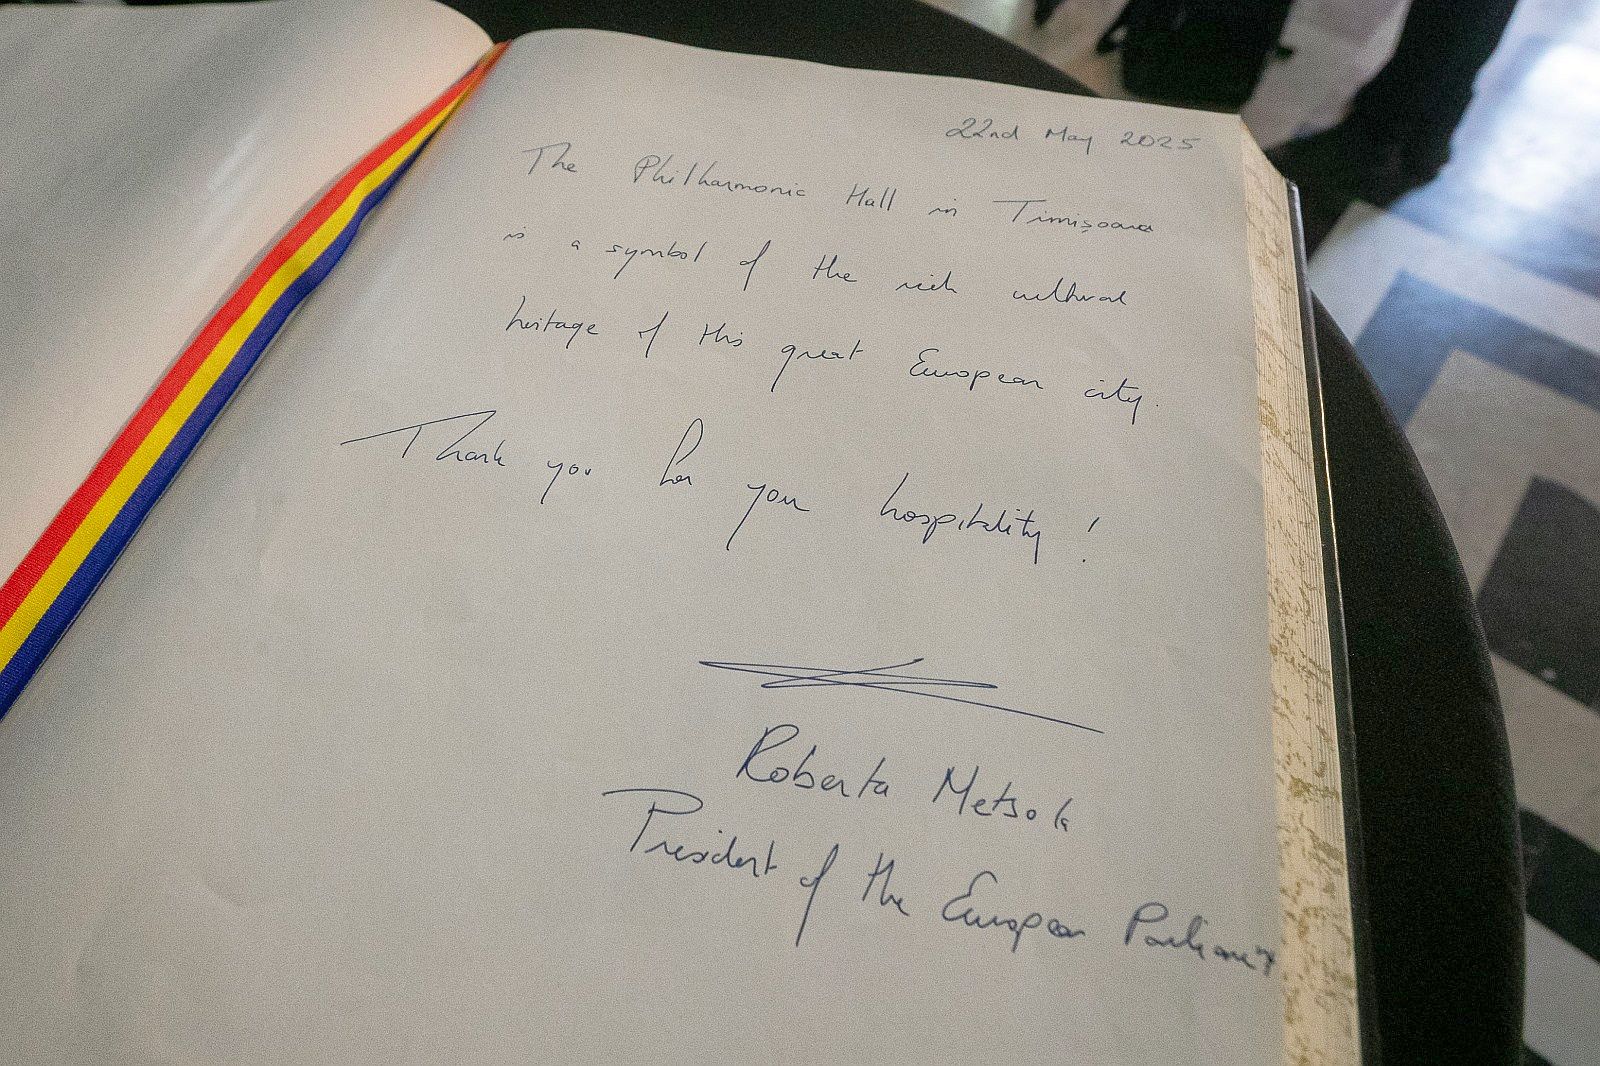 22nd May 2025
The Philharmonic Hall in Timișoara
is a symbol of the rich cultural
heritage of this great European city.
Thank you for your hospitality!
Roberta Metsola
President of the European Parliament